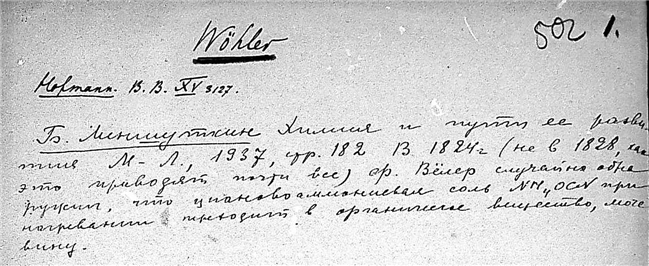 Wöhler
502 1.
Hofmann. B. B. XV 3127.
Б. Меншуткин Химия и пути ее разви-
тия М-Л., 1937, стр. 182 В 1824 г (не в 1828, как
это приводят почти все) Ф. Вёлер случайно обна-
ружил, что циановоаммониевая соль NH4OCN при
нагревании переходит в органическое вещество, моче-
вину.